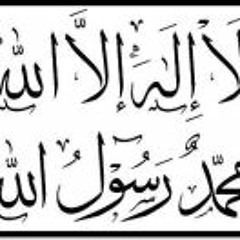 لَا إِلَهَ إِلَّا اللَّه
مُحَمَّدٌ رَسُوْلُ اللَّه